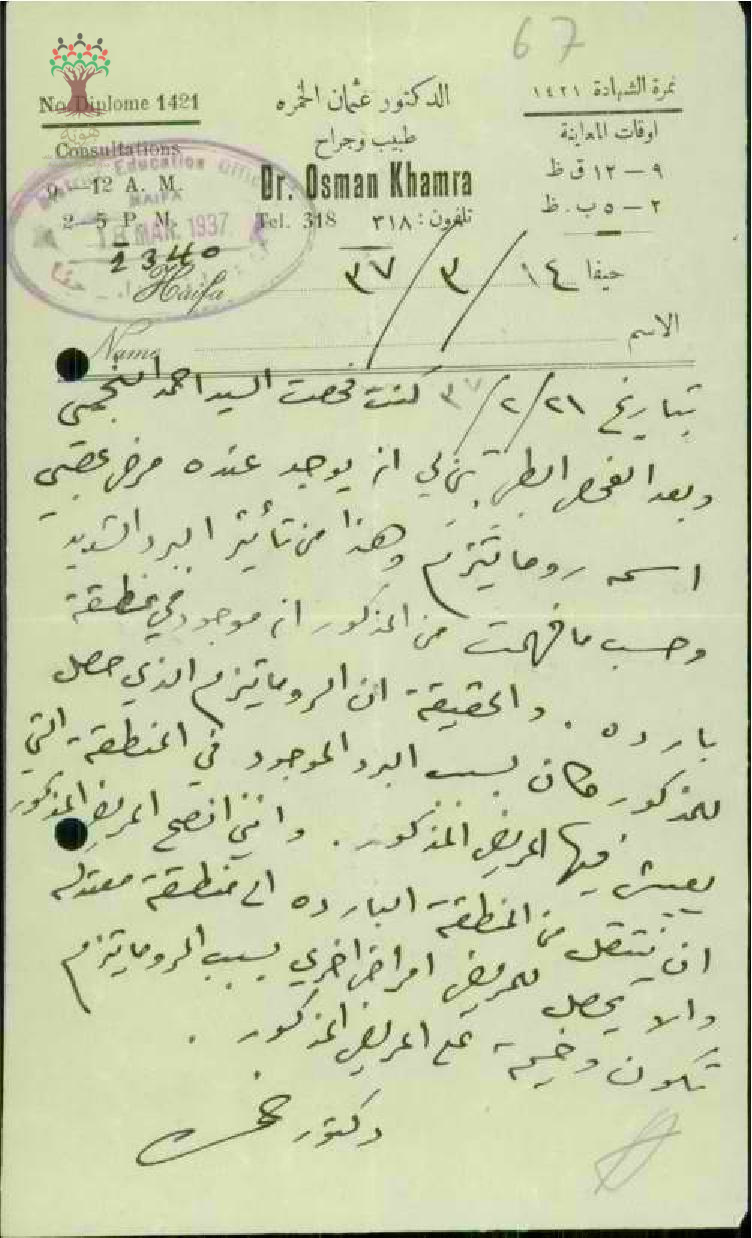 67
No Diplome 1421
الدكتور عثمان الخمره
نمرة الشهادة ١٤٢١
هوية
Consultations
طبيب وجراح
اوقات المعاينة
9—12 A. M.
Dr. Osman Khamra
٩ — ١٢ ق ظ
2—5 P. M.
Tel. 318 تلفون: ٣١٨
٢ — ٥ ب. ظ
District Education Office
HAIFA
MAR. 1937
2340
Haifa
حيفا ١٤ / ٣ / ٣٧
Name
الاسم
بتاريخ ٢١ / ٢ / ٣٧ كنت فحصت السيد احمد
وبعد الفحص الطبي تبين لي انه يوجد عنده مرض عصبي
اسمه روماتيزم وهذا من تأثير البرد الشديد
وحسب ما فهمت من المذكور انه موجود في منطقة
بارده . والحقيقة ان الروماتيزم الذي حصل
للمذكور كان بسبب البرد الموجود في المنطقة التي
يعيش فيها المريض المذكور . وانني انصح المريض المذكور
ان ينتقل من المنطقة البارده الى منطقة معتدله
والا يحصل للمريض امراض اخرى بسبب الروماتيزم
تكون وخيمة على المريض المذكور .
دكتور